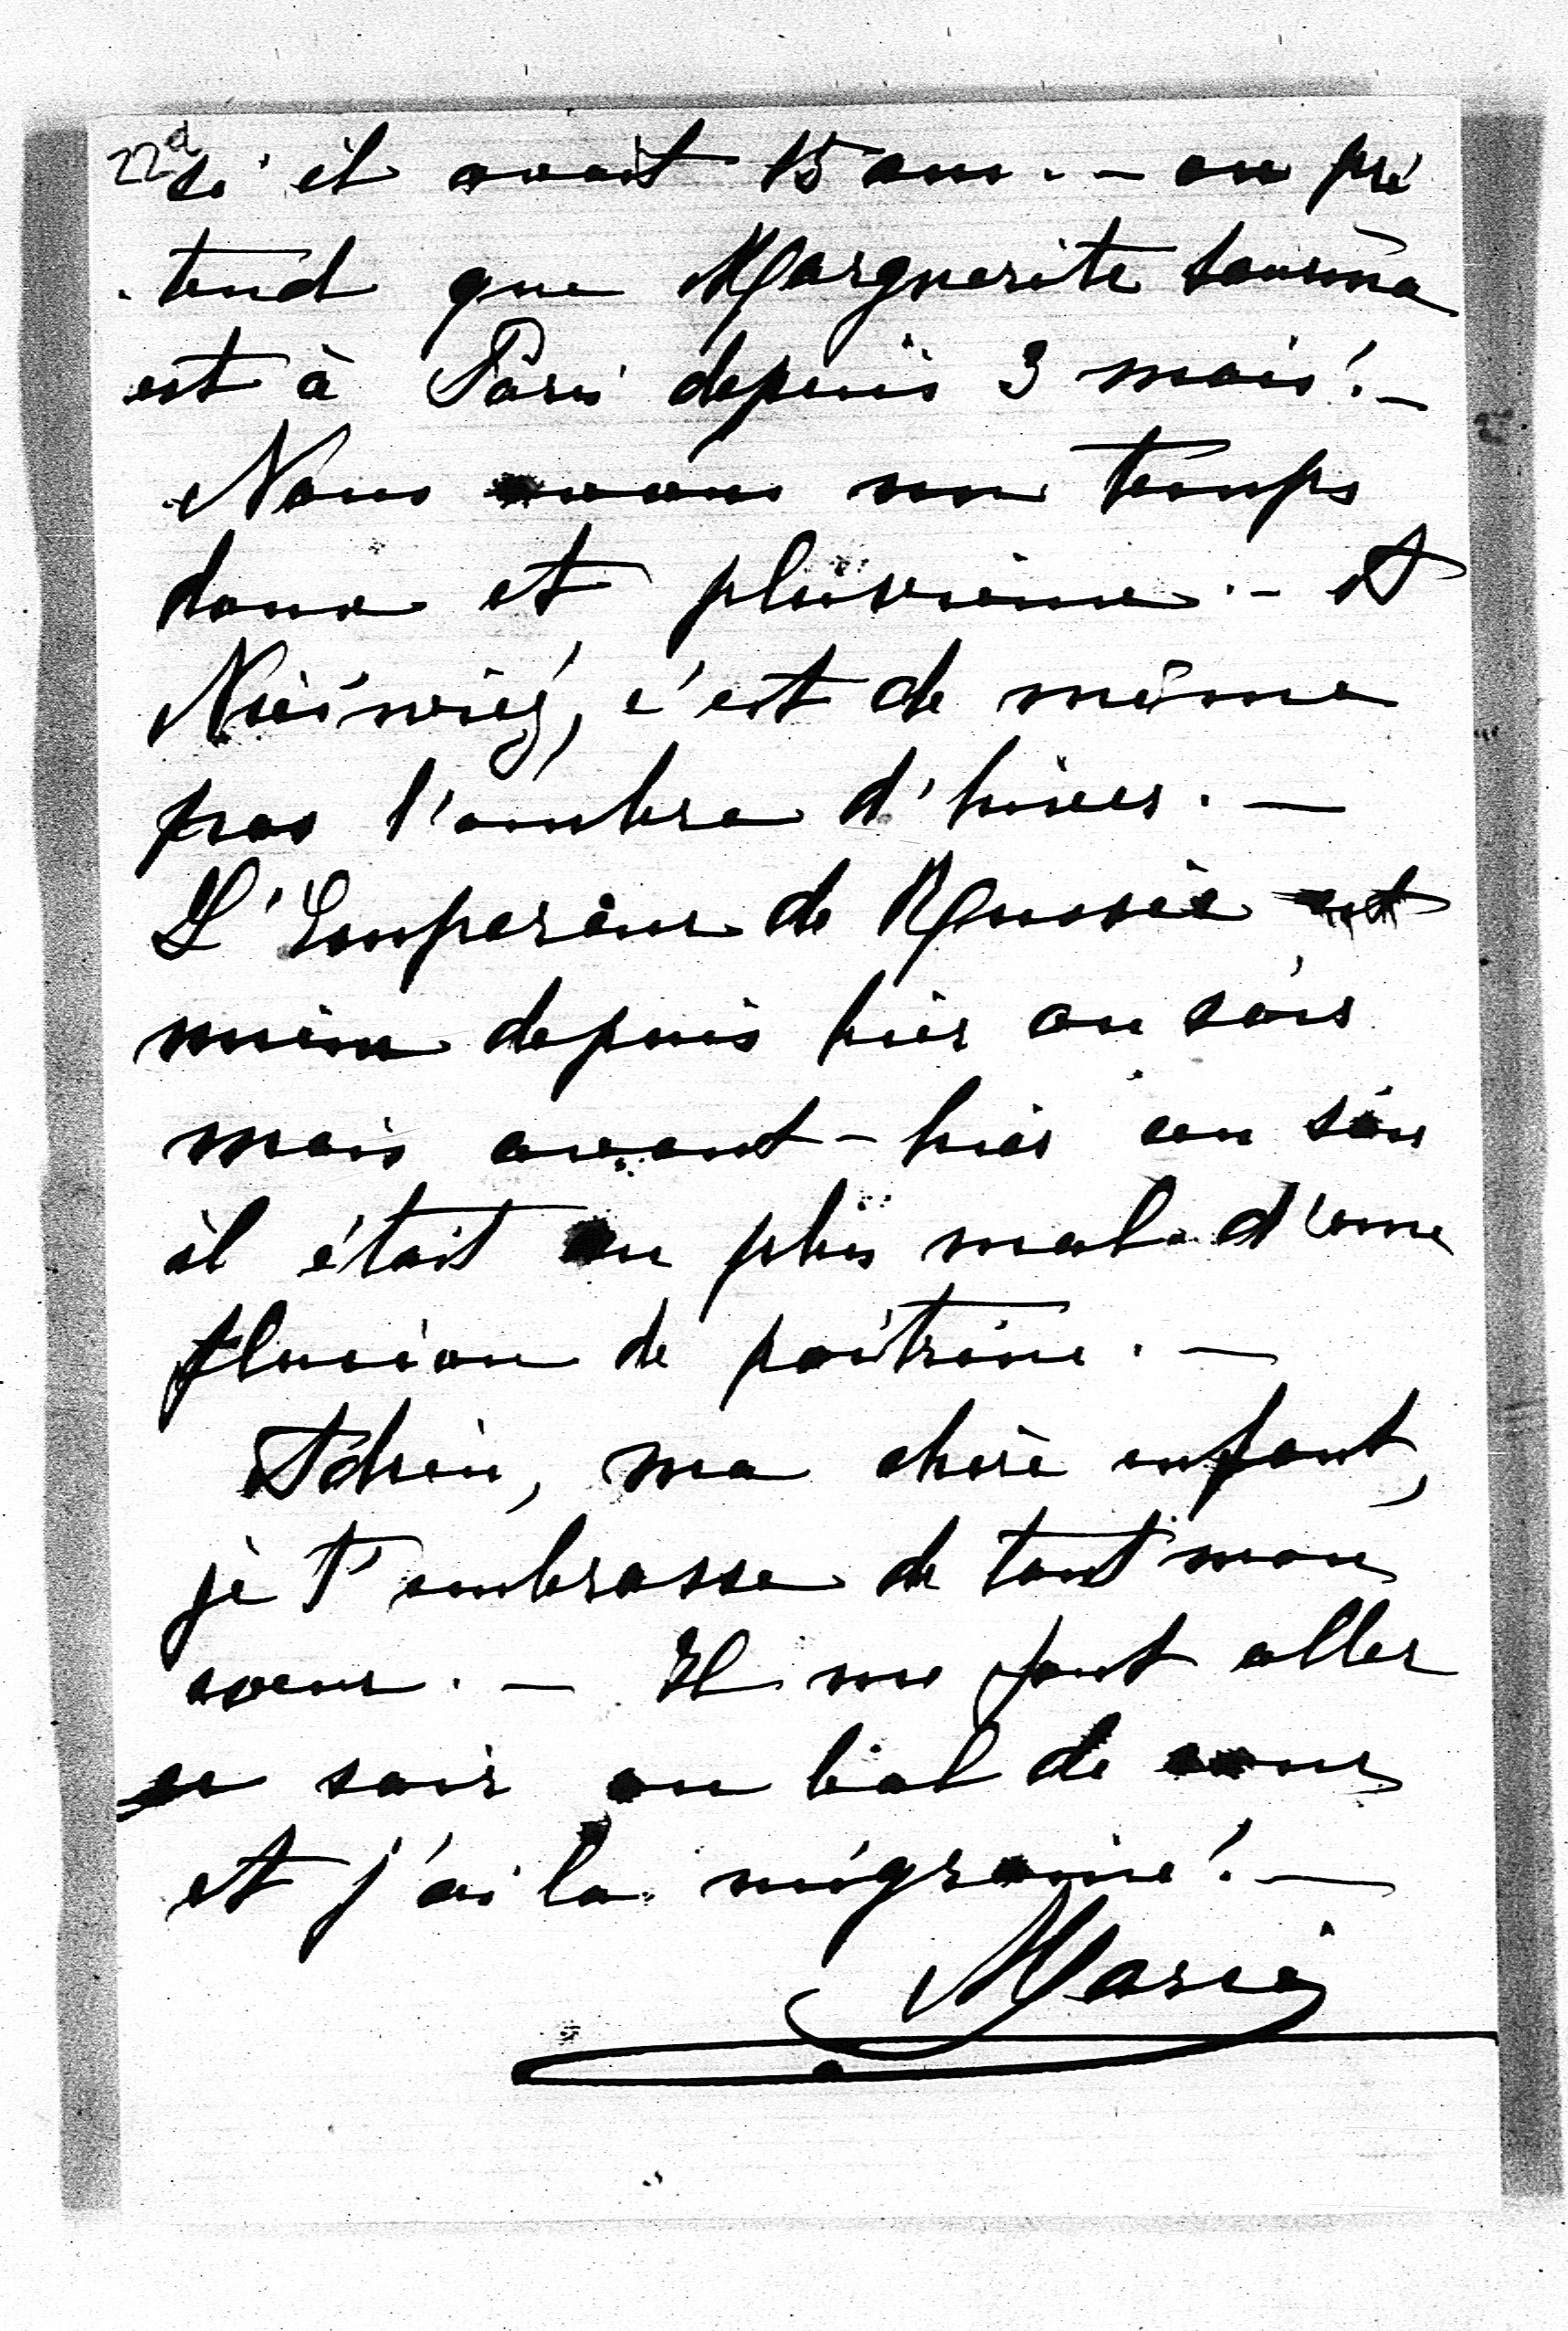 22d
si il avait 15 ans. - on pré
-tend que Marguerite
est à Paris depuis 3 mois!. -
Nous avons un temps
doux et pluvieux. - A
Nieśwież, c'est de même
pas l'ombre d'hiver. -
L'Empereur de Russie est
mieux depuis hier au soir
mais avant-hier au soir
il était au plus mal d'une
fluxion de poitrine. -
Adieu, ma chère enfant,
je t'embrasse de tout mon
coeur. - Il me faut aller
ce soir au bal de cour
et j'ai la migraine!. -
Marie